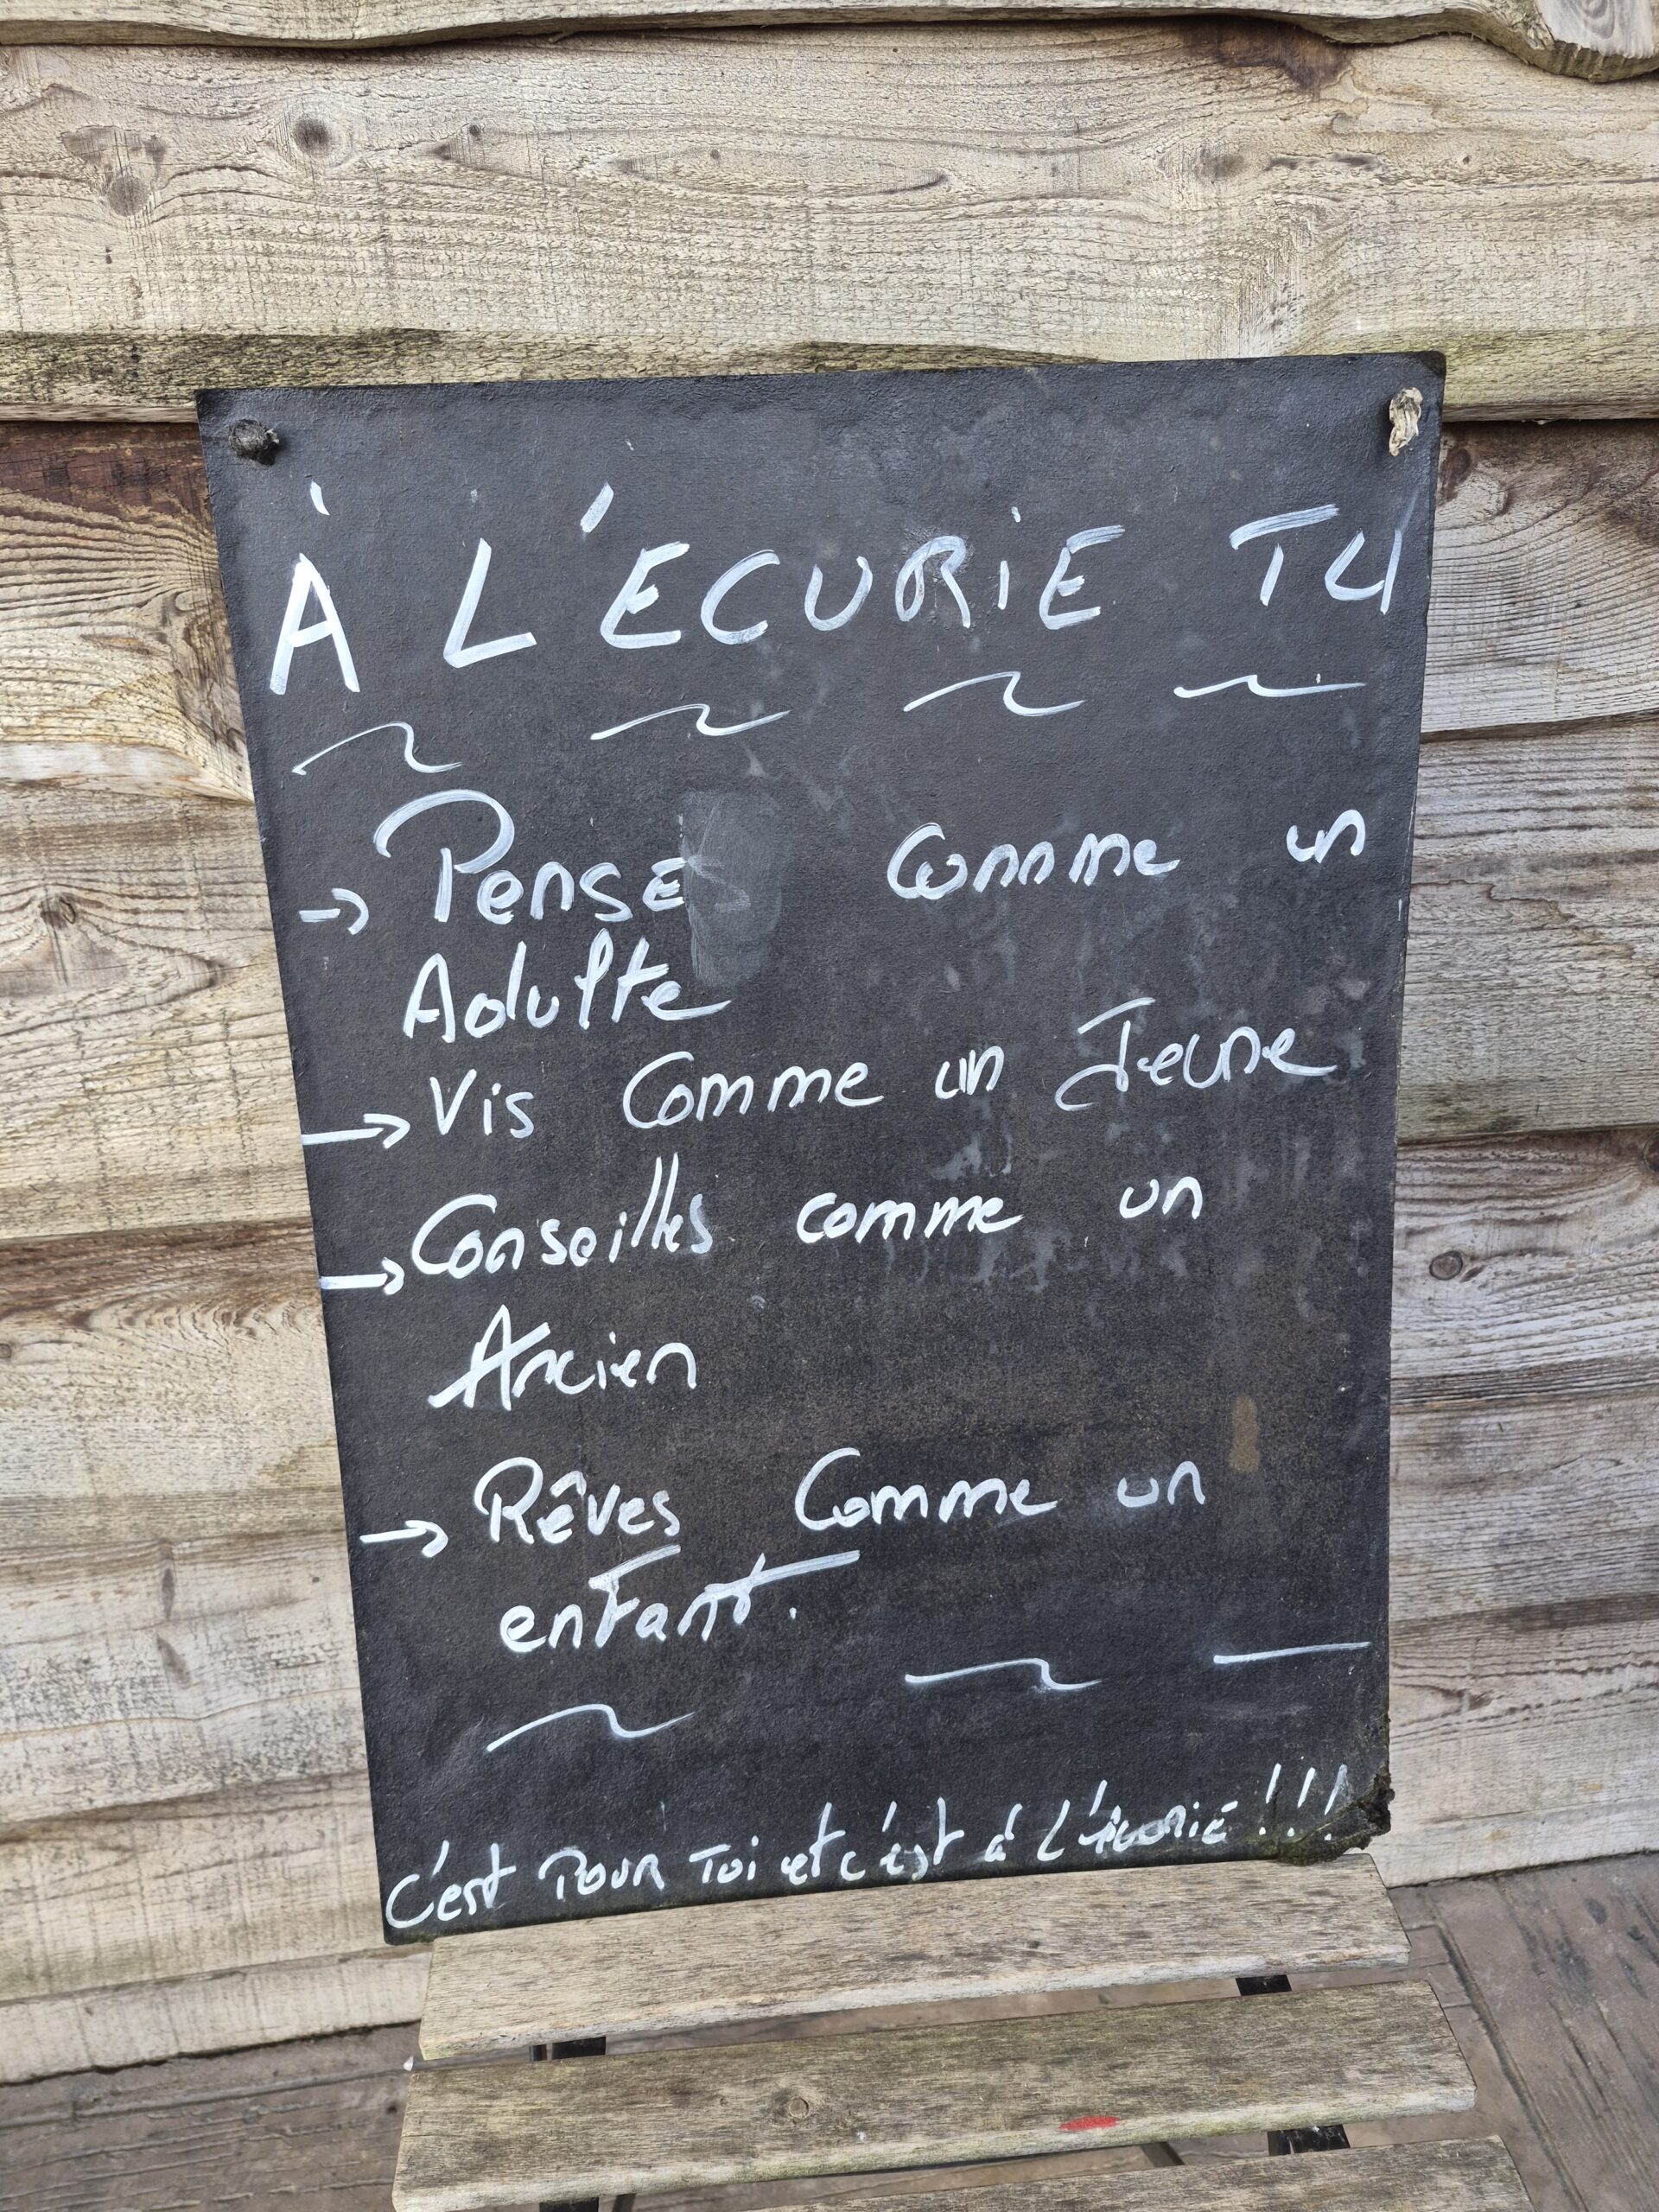 À L'ÉCURIE TU
→ Pense comme un
Adulte
→ Vis Comme un Jeune
→ Conseilles comme un
Ancien
→ Rêves Comme un
enfant.
C'est POUR Toi et c'est à L'écurie !!!